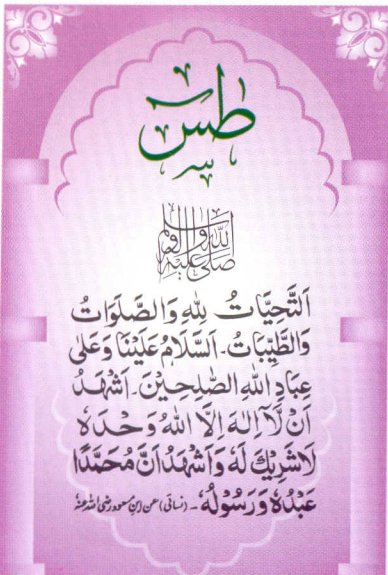 طس
صلی اللہ علیہ والہ وسلم
اَلتَّحِيَّاتُ لِلّٰهِ وَالصَّلَوَاتُ
وَالطَّيِّبَاتُ۔ اَلسَّلَامُ عَلَيْنَا وَعَلٰى
عِبَادِ اللّٰهِ الصّٰلِحِيْنَ۔ اَشْهَدُ
اَنْ لَّآ اِلٰهَ اِلَّا اللّٰهُ وَحْدَهٗ
لَا شَرِيْكَ لَهٗ وَاَشْهَدُ اَنَّ مُحَمَّدًا
عَبْدُهٗ وَرَسُوْلُهٗ۔ (نسائی) عن ابن مسعود رضی اللہ عنہ